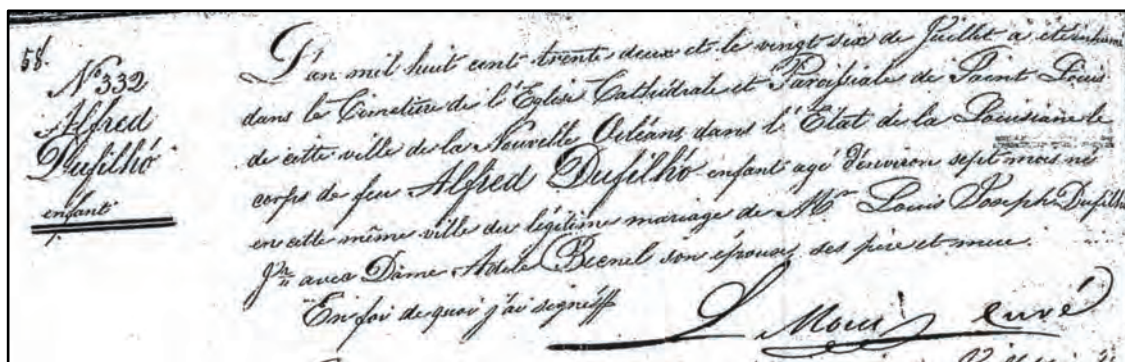 58.
N° 332
Alfred
Dufilhó
enfant
L'an mil huit cent trente deux et le vingt six de Juillet a été inhumé
dans le Cimetière de l'Église Cathédrale et Paroissiale de Saint Louis
de cette ville de la Nouvelle Orléans dans l'État de la Louisiane le
corps de feu Alfred Dufilhó enfant agé d'environ sept mois né
en cette même ville du légitime mariage de Mr Louis Joseph Dufilho
Jn avec Dame Adele Becnel son épouse, ses père et mere.
En foi de quoi j'ai signé
L. Moni curé